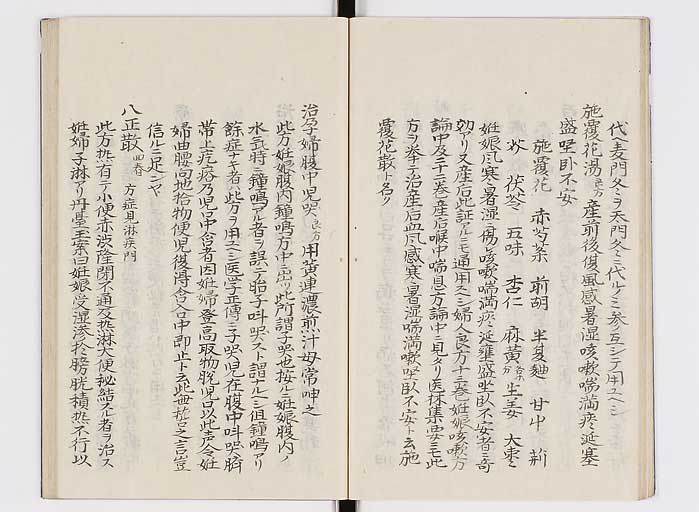 代ヘ麦門冬ヲ天門冬ニ代ルノミ参互シテ用ユヘシ
施覆花湯 良方 産前後傷風感暑湿咳嗽喘満痰涎塞
盛坐臥不安
施覆花 赤芍茶 前胡 半夏麯 甘中 荊
芥 茯苓 五味 杏仁 麻黄 生姜 大棗
妊娠風寒暑湿ニ傷ラレ咳嗽喘満痰涎壅盛坐臥不安者ニ奇
効アリ又産后此証アルニモ通用スヘシ婦人良方十三巻妊娠咳嗽方
論中及二十二巻産后喉中喘息方論中ニ見タリ医林集要ニモ此
方ヲ挙テ治産后血風感寒暑湿喘満嗽坐臥不安ト云施
覆花散ト名ク
治孕婦腹中児哭 良方 用黄連濃煎汁母常呷之
此方妊娠腹内鐘鳴方中ニ出ツ此所謂子哭也按ニ妊娠腹内ノ
水気時ニ鐘鳴アル者ヲ誤テ胎子呌哭スト謂ナルヘシ但鐘鳴アリ
餘症ナキ者ハ此方ヲ用ユヘシ医学正傳ニ子哭児在腹中呌哭臍
帯上疙瘩乃児口中含者因妊婦登高取物脱児口以此声令妊
婦曲腰向地拾物使児復得含入口中即止ト云此無於之言豈
信ルニ足ンヤ
八正散 四春 方症見淋疾門
此方熱有テ小便赤渋陰閉不通及熱淋大便秘結スル者ヲ治ス
妊婦子淋アリ丹臺玉案曰妊娠受湿滲於膀胱積熱不行以